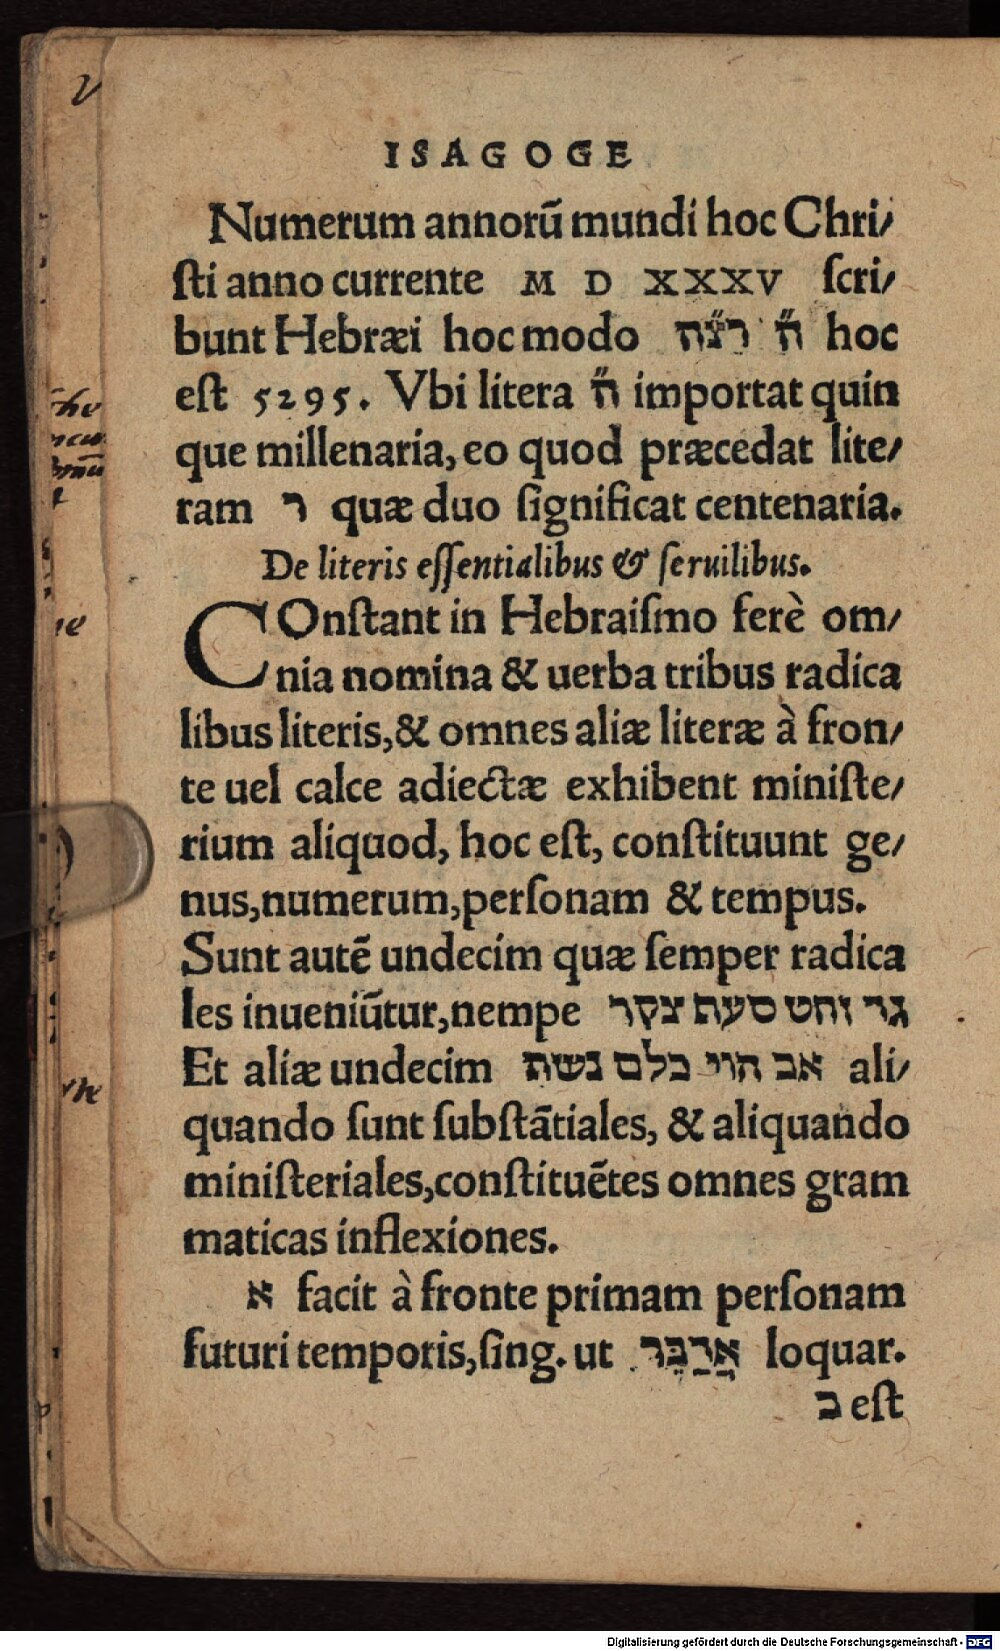 ISAGOGE
Numerum annorũ mundi hoc Chri/
ſti anno currente M D XXXV ſcri/
bunt Hebræi hoc modo ה״ רצ״ה hoc
eſt 5295. Vbi litera ה״ importat quin
que millenaria, eo quod præcedat lite/
ram ר quæ duo ſignificat centenaria.
De literis eſſentialibus & ſeruilibus.
COnſtant in Hebraiſmo ferè om/
nia nomina & uerba tribus radica
libus literis,& omnes aliæ literæ à fron/
te uel calce adiectæ exhibent miniſte/
rium aliquod, hoc eſt, conſtituunt ge/
nus,numerum,perſonam & tempus.
Sunt autẽ undecim quæ ſemper radica
les inueniũtur,nempe גד זחט סעפ צקר
Et aliæ undecim אב הוי כלם נשת ali/
quando ſunt ſubſtãtiales, & aliquando
miniſteriales,conſtituẽtes omnes gram
maticas inflexiones.
א facit à fronte primam perſonam
futuri temporis,ſing. ut אֲדַבֵּר loquar.
ב eſt
Digitalisierung gefördert durch die Deutsche Forschungsgemeinschaft - DFG